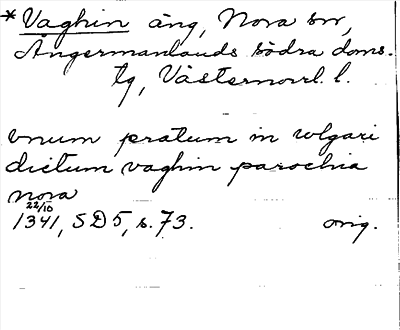 *Vaghin äng, Nora sn,
Ångermanlands södra doms.
tg, Västernorrl. l.
vnum pratum in wlgari
dictum vaghin parochia
nora
22/10
1341, SD 5, s. 73. orig.